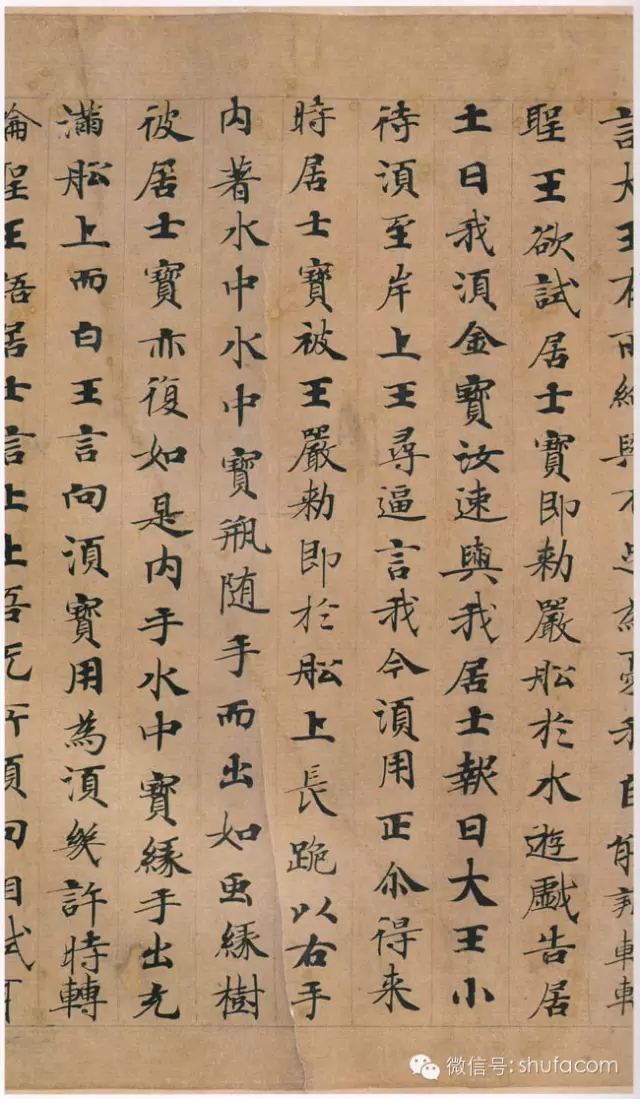 言大王有所給與不足為憂我自能辦轉
聖王欲試居士寶即勅嚴舩於水遊戲告居
士曰我湏金寶汝速與我居士報曰大王小
待湏至岸上王尋逼言我今湏用正尒得来
時居士寶被王嚴勅即於舩上長跪以右手
内著水中水中寶瓶随手而出如虫緣樹
彼居士寶亦復如是内手水中寶緣手出充
滿舩上而白王言向湏寶用為湏幾許時轉
輪聖王語居士言止止吾无所須向相試耳
微信号: shufacom